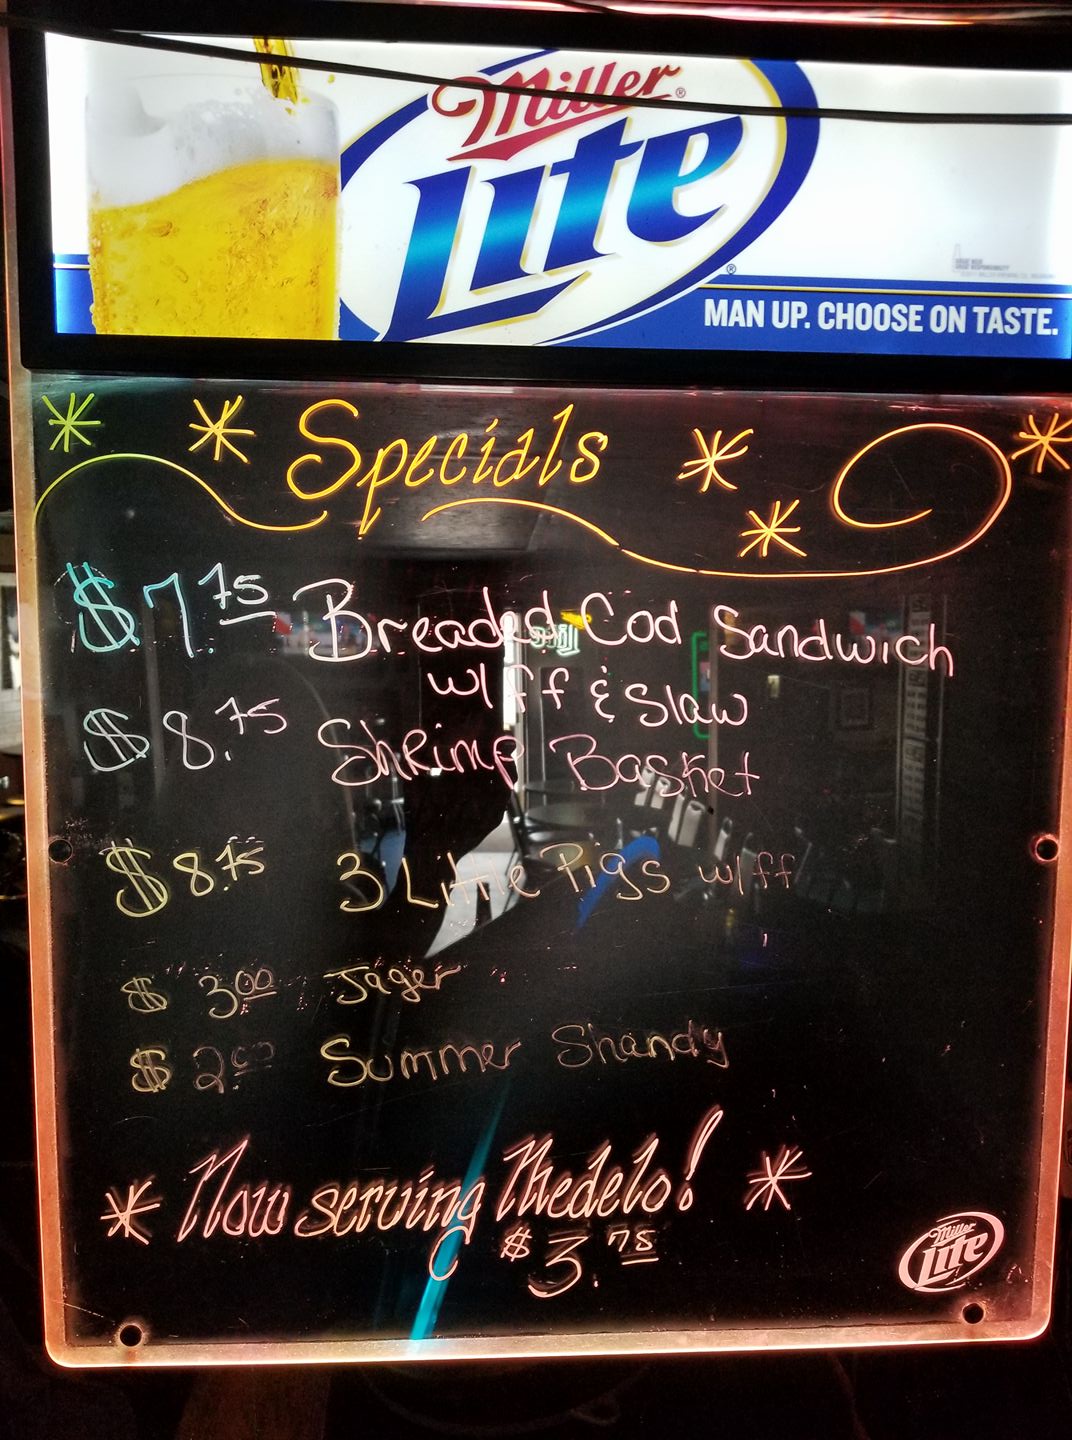 Miller®
Lite®
MAN UP. CHOOSE ON TASTE.
Specials
$7.75 Breaded Cod Sandwich
w/ ff & Slaw
$8.75 Shrimp Basket
$8.75 3 Little Pigs w/ff
$3.00 Jager
$2.00 Summer Shandy
Now serving Medelo!
$3.75
Miller
Lite